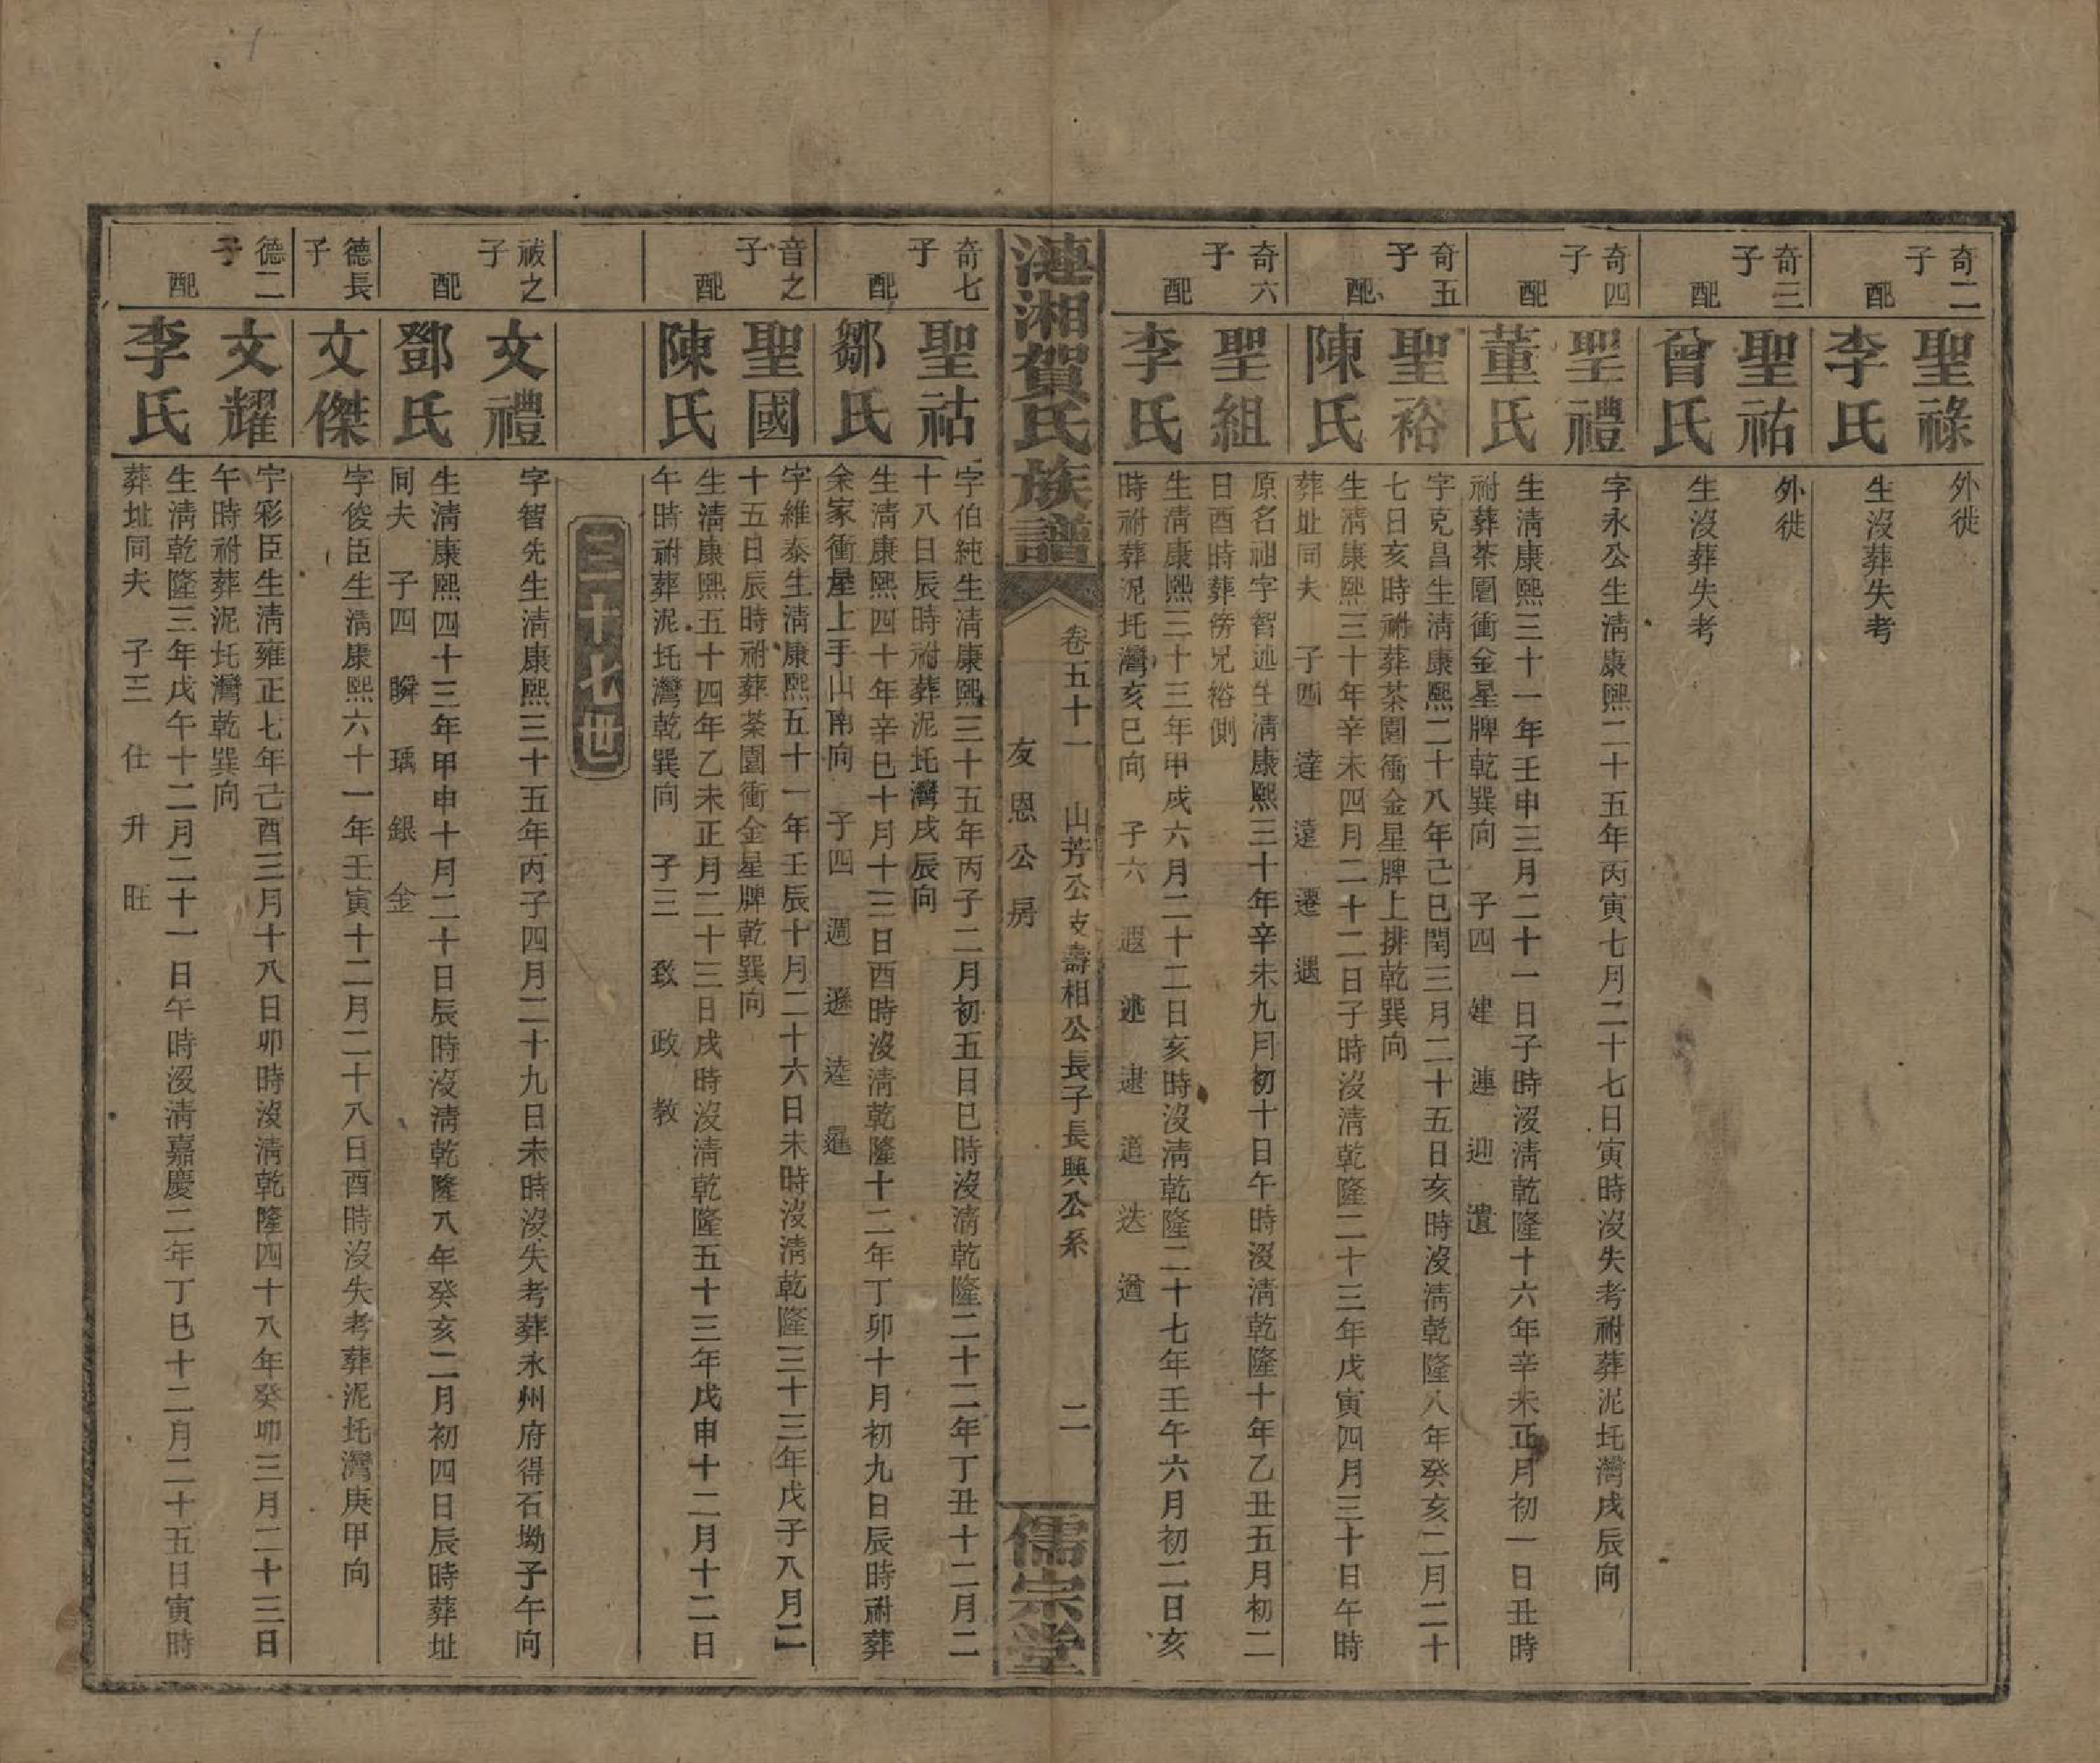 奇二子
聖祿
外徙
配
李氏
生沒葬失考
奇三子
聖祐
外徙
配
曾氏
生沒葬失考
奇四子
聖禮
字永公生淸康熙二十五年丙寅七月二十七日寅時沒失考祔葬泥圫灣戌辰向
配
董氏
生淸康熙三十一年壬申三月二十一日子時沒淸乾隆十六年辛未正月初一日丑時
祔葬茶園衝金星牌乾巽向 子四 建 連 迎 遺
奇五子
聖裕
字克昌生淸康熙二十八年己巳閏三月二十五日亥時沒淸乾隆八年癸亥二月二十
七日亥時祔葬茶園衝金星牌上排乾巽向
配
陳氏
生淸康熙三十年辛未四月二十二日子時沒淸乾隆二十三年戊寅四月三十日午時
葬址同夫 子四 達 遠 遷 遇
奇六子
聖組
原名祖字智述生淸康熙三十年辛未九月初十日午時沒淸乾隆十年乙丑五月初二
日酉時葬傍兄裕側
配
李氏
生淸康熙三十三年甲戌六月二十二日亥時沒淸乾隆二十七年壬午六月初二日亥
時祔葬泥圫灣亥巳向 子六 遐 述 逮 道 迭 遒
漣湘賀氏族譜
卷五十一 山芳公支壽相公長子長興公系
友恩公房
二
儒宗堂
奇七子
聖祜
字伯純生淸康熙三十五年丙子二月初五日巳時沒淸乾隆二十二年丁丑十二月二
十八日辰時祔葬泥圫灣戌辰向
配
鄒氏
生淸康熙四十年辛巳十月十三日酉時沒淸乾隆十二年丁卯十月初九日辰時祔葬
余家衝屋上手山南向 子四 週 遜 逵 暹
音之子
聖國
字維泰生淸康熙五十一年壬辰十月二十六日未時沒淸乾隆三十三年戊子八月二
十五日辰時祔葬茶園衝金星牌乾巽向
配
陳氏
生淸康熙五十四年乙未正月二十三日戌時沒淸乾隆五十三年戊申十二月十二日
午時祔葬泥圫灣乾巽向 子三 致 政 敎
三十七世
祓之子
文禮
字智先生淸康熙三十五年丙子四月二十九日未時沒失考葬永州府得石坳子午向
配
鄧氏
生淸康熙四十三年甲申十月二十日辰時沒淸乾隆八年癸亥二月初四日辰時葬址
同夫 子四 瞬 瑀 銀 金
德長子
文傑
字俊臣生淸康熙六十一年壬寅十二月二十八日酉時沒失考葬泥圫灣庚甲向
德二子
文耀
字彩臣生淸雍正七年己酉三月十八日卯時沒淸乾隆四十八年癸卯三月二十三日
午時祔葬泥圫灣乾巽向
配
李氏
生淸乾隆三年戊午十二月二十一日午時沒淸嘉慶二年丁巳十二月二十五日寅時
葬址同夫 子三 仕 升 旺